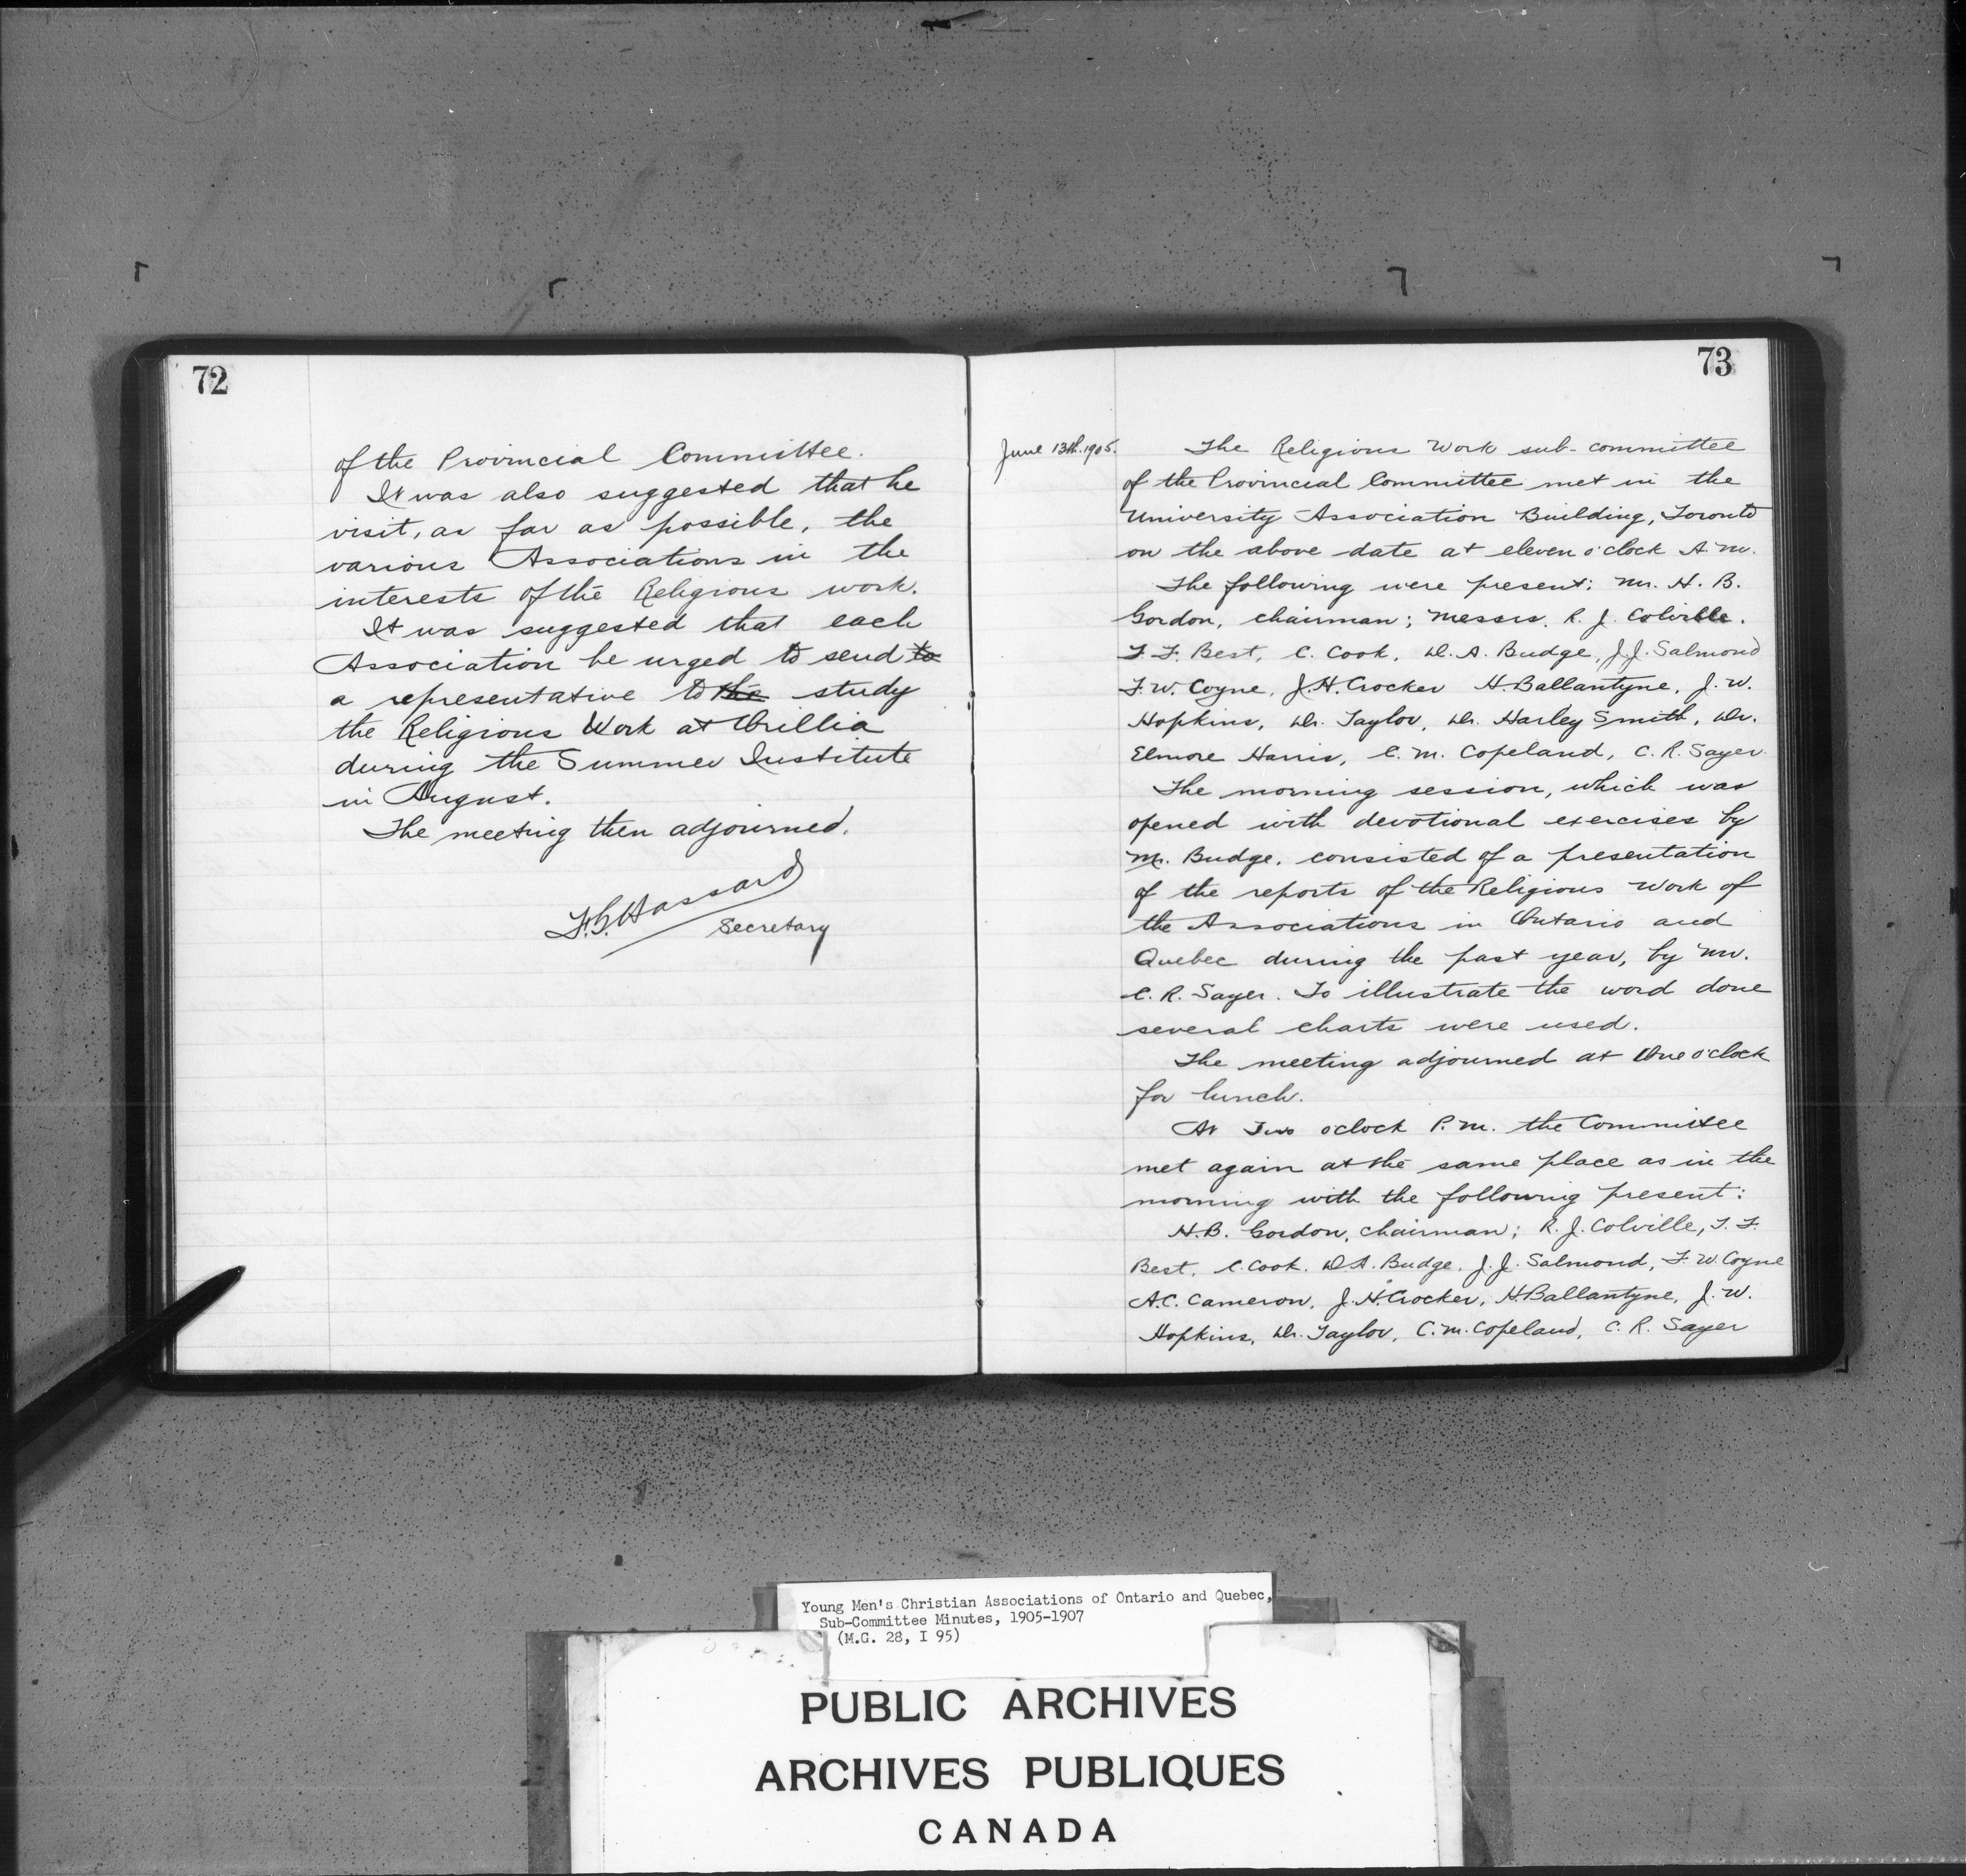 72
of the Provincial Committee.
It was also suggested that he
visit, as far as possible, the
various Associations in the
interests of the Religious work.
It was suggested that each
Association be urged to send to
a representative to the study
the Religious Work at Orillia
during the Summer Institute
in August.
The meeting then adjourned.
F.G. Hassard
Secretary
73
June 13th. 1905.
The Religious Work sub-committee
of the Provincial Committee met in the
University Association Building, Toronto
on the above date at eleven o'clock A.M.
The following were present: Mr. H. B.
Gordon, chairman; Messrs. R. J. Colville.
T. F. Best, C. Cook, D. A. Budge, J. J. Salmond
F. W. Coyne, J. H. Crocker H. Ballantyne, J. W.
Hopkins, Dr. Taylor, Dr. Harley Smith, Dr.
Elmore Harris, C. M. Copeland, C. R. Sayer
The morning session, which was
opened with devotional exercises by
Mr. Budge, consisted of a presentation
of the reports of the Religious Work of
the Associations in Ontario and
Quebec during the past year, by Mr.
C. R. Sayer. To illustrate the word done
several charts were used.
The meeting adjourned at One o'clock
for lunch.
At Two oclock P.M. the Committee
met again at the same place as in the
morning with the following present:
H. B. Gordon, chairman; R. J. Colville, T. F.
Best, C. Cook, D. A. Budge, J. J. Salmond, F. W. Coyne
A. C. Cameron, J. H. Crocker, H. Ballantyne, J. W.
Hopkins, Dr. Taylor, C. M. Copeland, C. R. Sayer
Young Men's Christian Associations of Ontario and Quebec,
Sub-Committee Minutes, 1905-1907
(M.G. 28, I 95)
PUBLIC ARCHIVES
ARCHIVES PUBLIQUES
CANADA